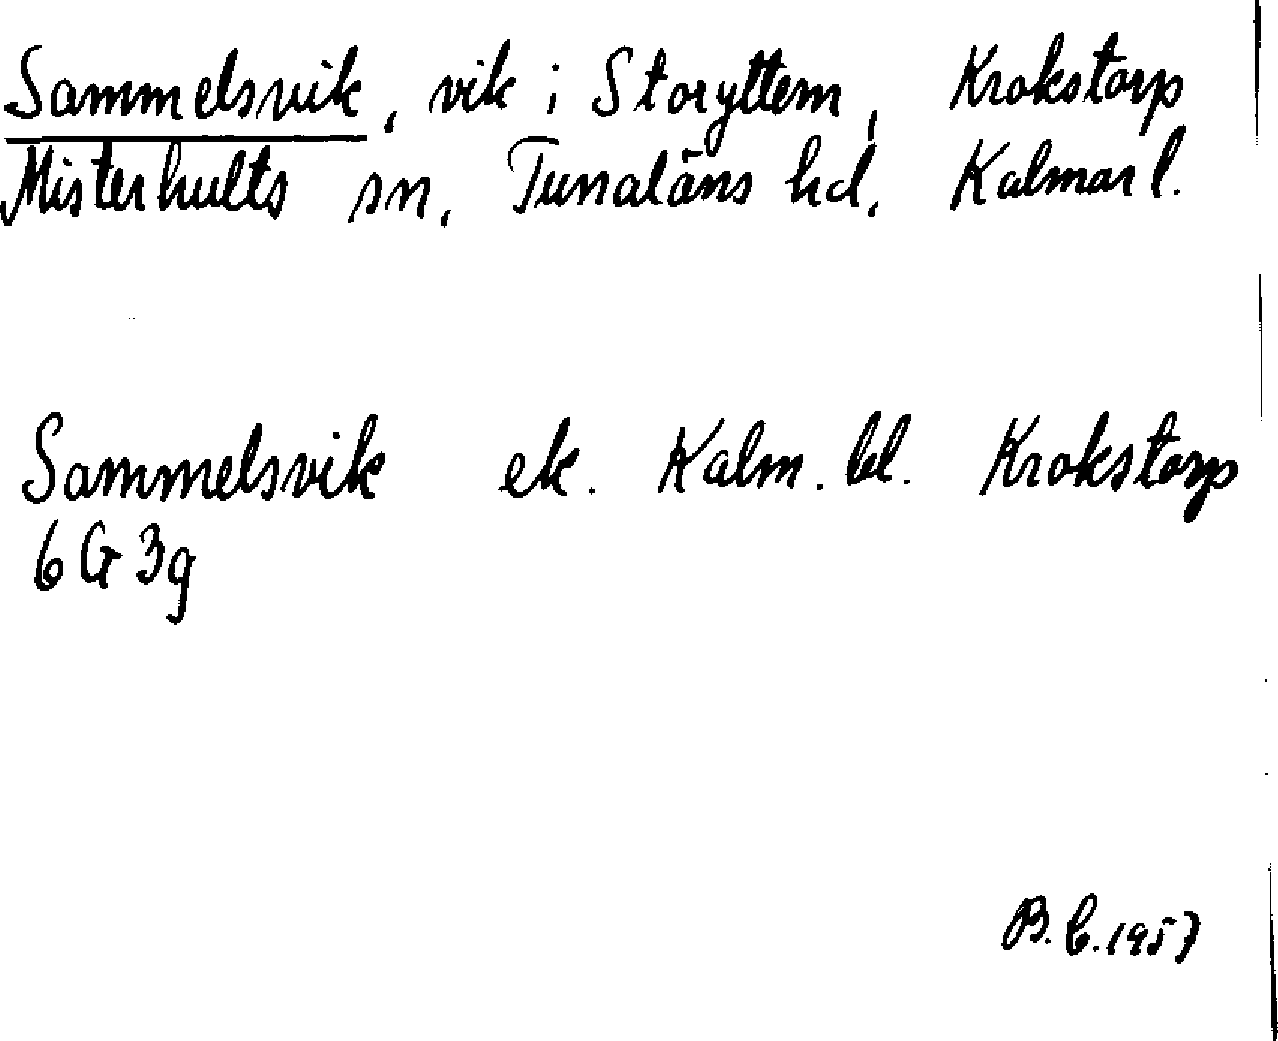 Sammelsvik, vik i Storyttern, Krokstorp
Misterhults sn, Tunaläns hd, Kalmar l.
Sammelsvik ek. Kalm. bl. Krokstorp
6 G 3g
B. C. 1957